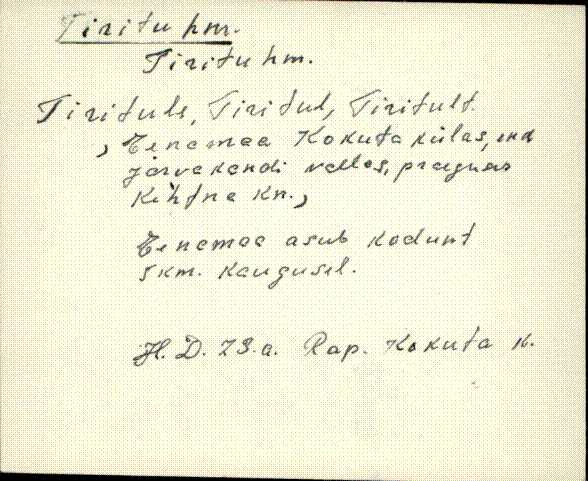 Tiritu hm.
Tiritu hm.
Tirituls, Tiritul, Tiritult.
, Eenamaa Kokuta külas, end.
Järvakandi vallas, praegune
Kehtna kn.,
Eenamaa asub kodunt
5 km. kaugusel.
H. D. 73.a. Rap. Kokuta k.